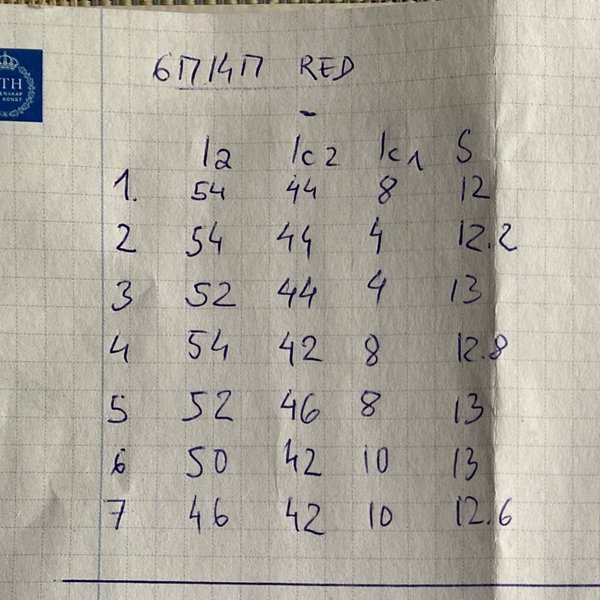 TH
ENSKAP
KONST
6П14П RED
-
Ia Ic2 Ic1 S
1. 54 44 8 12
2 54 44 4 12.2
3 52 44 4 13
4 54 42 8 12.8
5 52 46 8 13
6 50 42 10 13
7 46 42 10 12.6